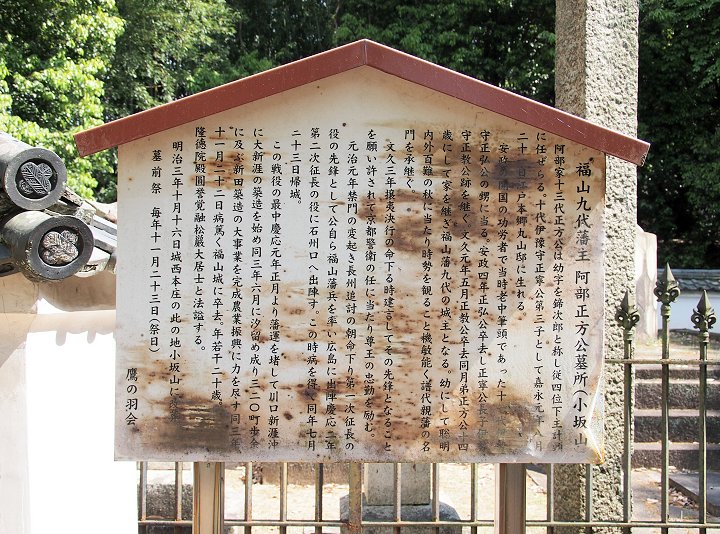 福山九代藩主 阿部正方公墓所(小坂山
阿部家十三代正方公は幼字を錦次郎と称し従四位下主計
に任ぜらる。十代伊豫守正寧公第三子として嘉永元年八月
二十 日江戸本郷丸山邸に生れる。
安政 開国の功労者で当時老中筆頭であった十
守正弘公の甥に当る。安政四年正弘公卒去し正寧公長子伊豫
守正教公跡を継ぐ。文久元年五月正教公卒去同月弟正方公十四
歳にして家を継ぎ福山藩九代の城主となる。幼にして聡明
内外百難の秋に当り時勢を観ること機敏能く譜代親藩の名
門を承継ぐ。
文久三年攘夷決行の命下る時建言してその先鋒となること
を願い許されて京都警衛の任に当たり尊王の忠勤を励む。
元治元年禁門の変起き長州追討の朝命下り第一次征長の
役の先鋒として公自ら福山藩兵を率い広島に出陣慶応二年
第二次征長の役に石州口へ出陣す。この時病を得て同年七月
二十三日帰城。
この戦役の最中慶応元年正月より藩運を堵して川口新涯沖
に大新涯の築造を始め同三年六月に汐留め成り三二〇町歩余
に及ぶ新田築造の大事業を完成農業振興に力を尽す同 年
十一月二十二日病篤く福山城に卒去。年若干二十歳。
隆徳院殿圓誉覚融松巌大居士と法謚する。
明治三年十月十六日城西本庄の此の地小坂山に
墓前祭 毎年十一月二十三日(祭日)
鷹の羽会